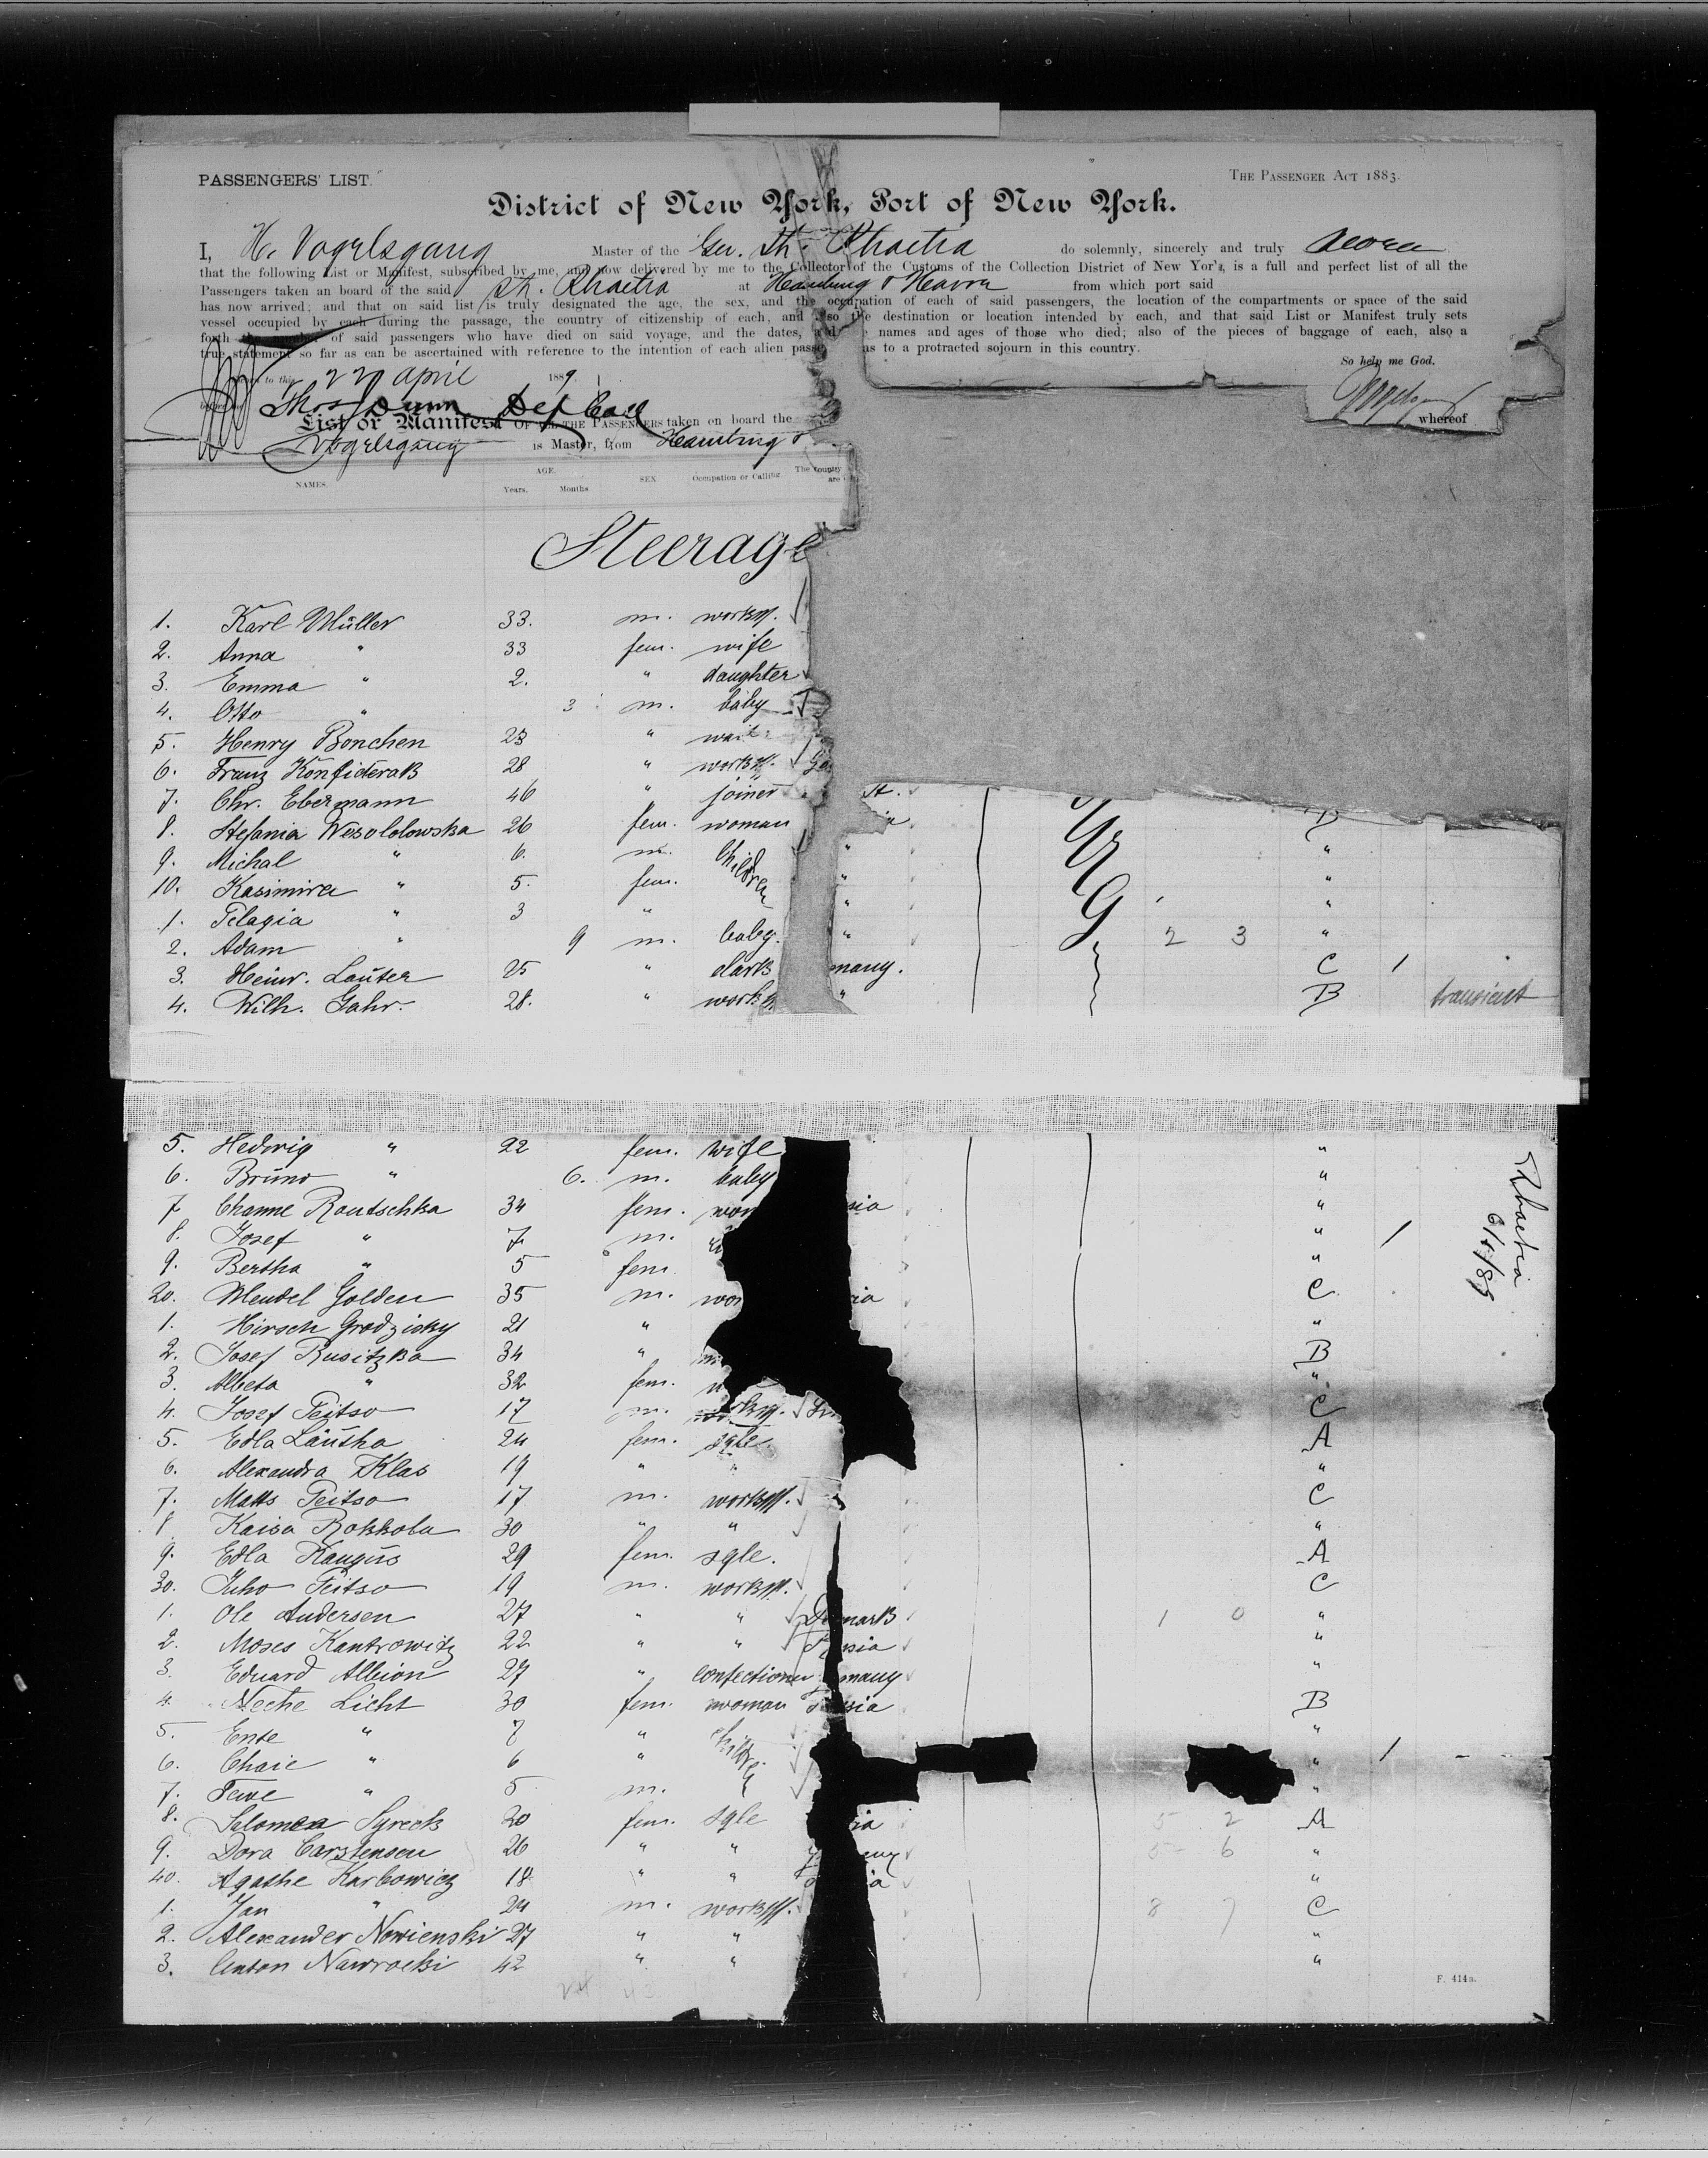 PASSENGERS' LIST.
THE PASSENGER ACT 1883.
District of New York, Port of New York.
I, H. Vogelsgang Master of the Ger. St. Rhaetia do solemnly, sincerely and truly swear
that the following List or Manifest, subscribed by me, and now delivered by me to the Collector of the Customs of the Collection District of New York, is a full and perfect list of all the
Passengers taken on board of the said St. Rhaetia at Hamburg & Havre from which port said
has now arrived; and that on said list is truly designated the age, the sex, and the occupation of each of said passengers, the location of the compartments or space of the said
vessel occupied by each during the passage, the country of citizenship of each, and also the destination or location intended by each, and that said List or Manifest truly sets
forth the number of said passengers who have died on said voyage, and the dates, and names and ages of those who died; also of the pieces of baggage of each, also a
true statement so far as can be ascertained with reference to the intention of each alien passe as to a protracted sojourn in this country.
So help me God.
to this 22 april 1889.
Thos Dunn Dep Coll
List or Manifest OF ALL THE PASSENGERS taken on board the whereof
Vogelsgang is Master, from Hamburg &
NAMES. AGE. Years. Months SEX Occupation or Calling. The Country are
Steerage
1. Karl Müller 33. m. workm.
2. Anna " 33 fem. wife
3. Emma " 2. " daughter
4. Otto " 3 m. baby
5. Henry Bonchen 23 "
6. Franz Konfiderak 28 " workm.
7. Chr. Ebermann 46 " joiner
8. Stefania Wesololowska 26 fem. woman
9. Michal " 6. m. Children " "
10. Kasimira " 5. fem. " "
1. Pelagia " 3 " " "
2. Adam " 9 m. baby. " 2 3 "
3. Heinr. Lauter 25 " clark many. C 1
4. Wilh. Jahr. 28. " workm " B transient
5. Hedwig " 22 fem. wife "
6. Bruno " 6. m. baby "
7 Channe Rautschka 34 fem. wom sia "
8. Josef " 7 m. " 1
9. Bertha " 5 fem. "
20. Mendel Golden 35 m. wor ia C
1. Hirsch Grodzisky 21 " "
2. Josef Rusitzka 34 " B
3. Albeta " 32 fem. "
4. Josef Peitso 17 m. C
5. Edla Lautha 24 fem. sgle. A
6. Alexandra Klas 19 " " "
7. Matts Peitso 17 m. workm. C
8 Kaisa Rokkola 30 " " "
9. Edla Kangus 29 fem. sgle. A
30. Juho Peitso 19 m. workm. C
1. Ole Andersen 27 " " Denmark 1 0 "
2. Moses Kantrowitz 22 " " Russia "
3. Eduard Albion 27 " confectioner many "
4. Neche Licht 30 fem. woman Russia B
5. Ente " 7 " Children "
6. Chaie " 6 " " 1 -
7. Tewe " 5 m. "
8. Salomea Syreck 20 fem. sgle ia 5 2 A
9. Dora Carstensen 26 " " 5 6 "
40. Agathe Karbowicz 18 " " ia "
1. Jan " 24 m. workm. 8 7 C
2. Alexander Nowienski 27 " " "
3. Anton Nawrocki 42 " " "
Rhaetia
F. 414a.